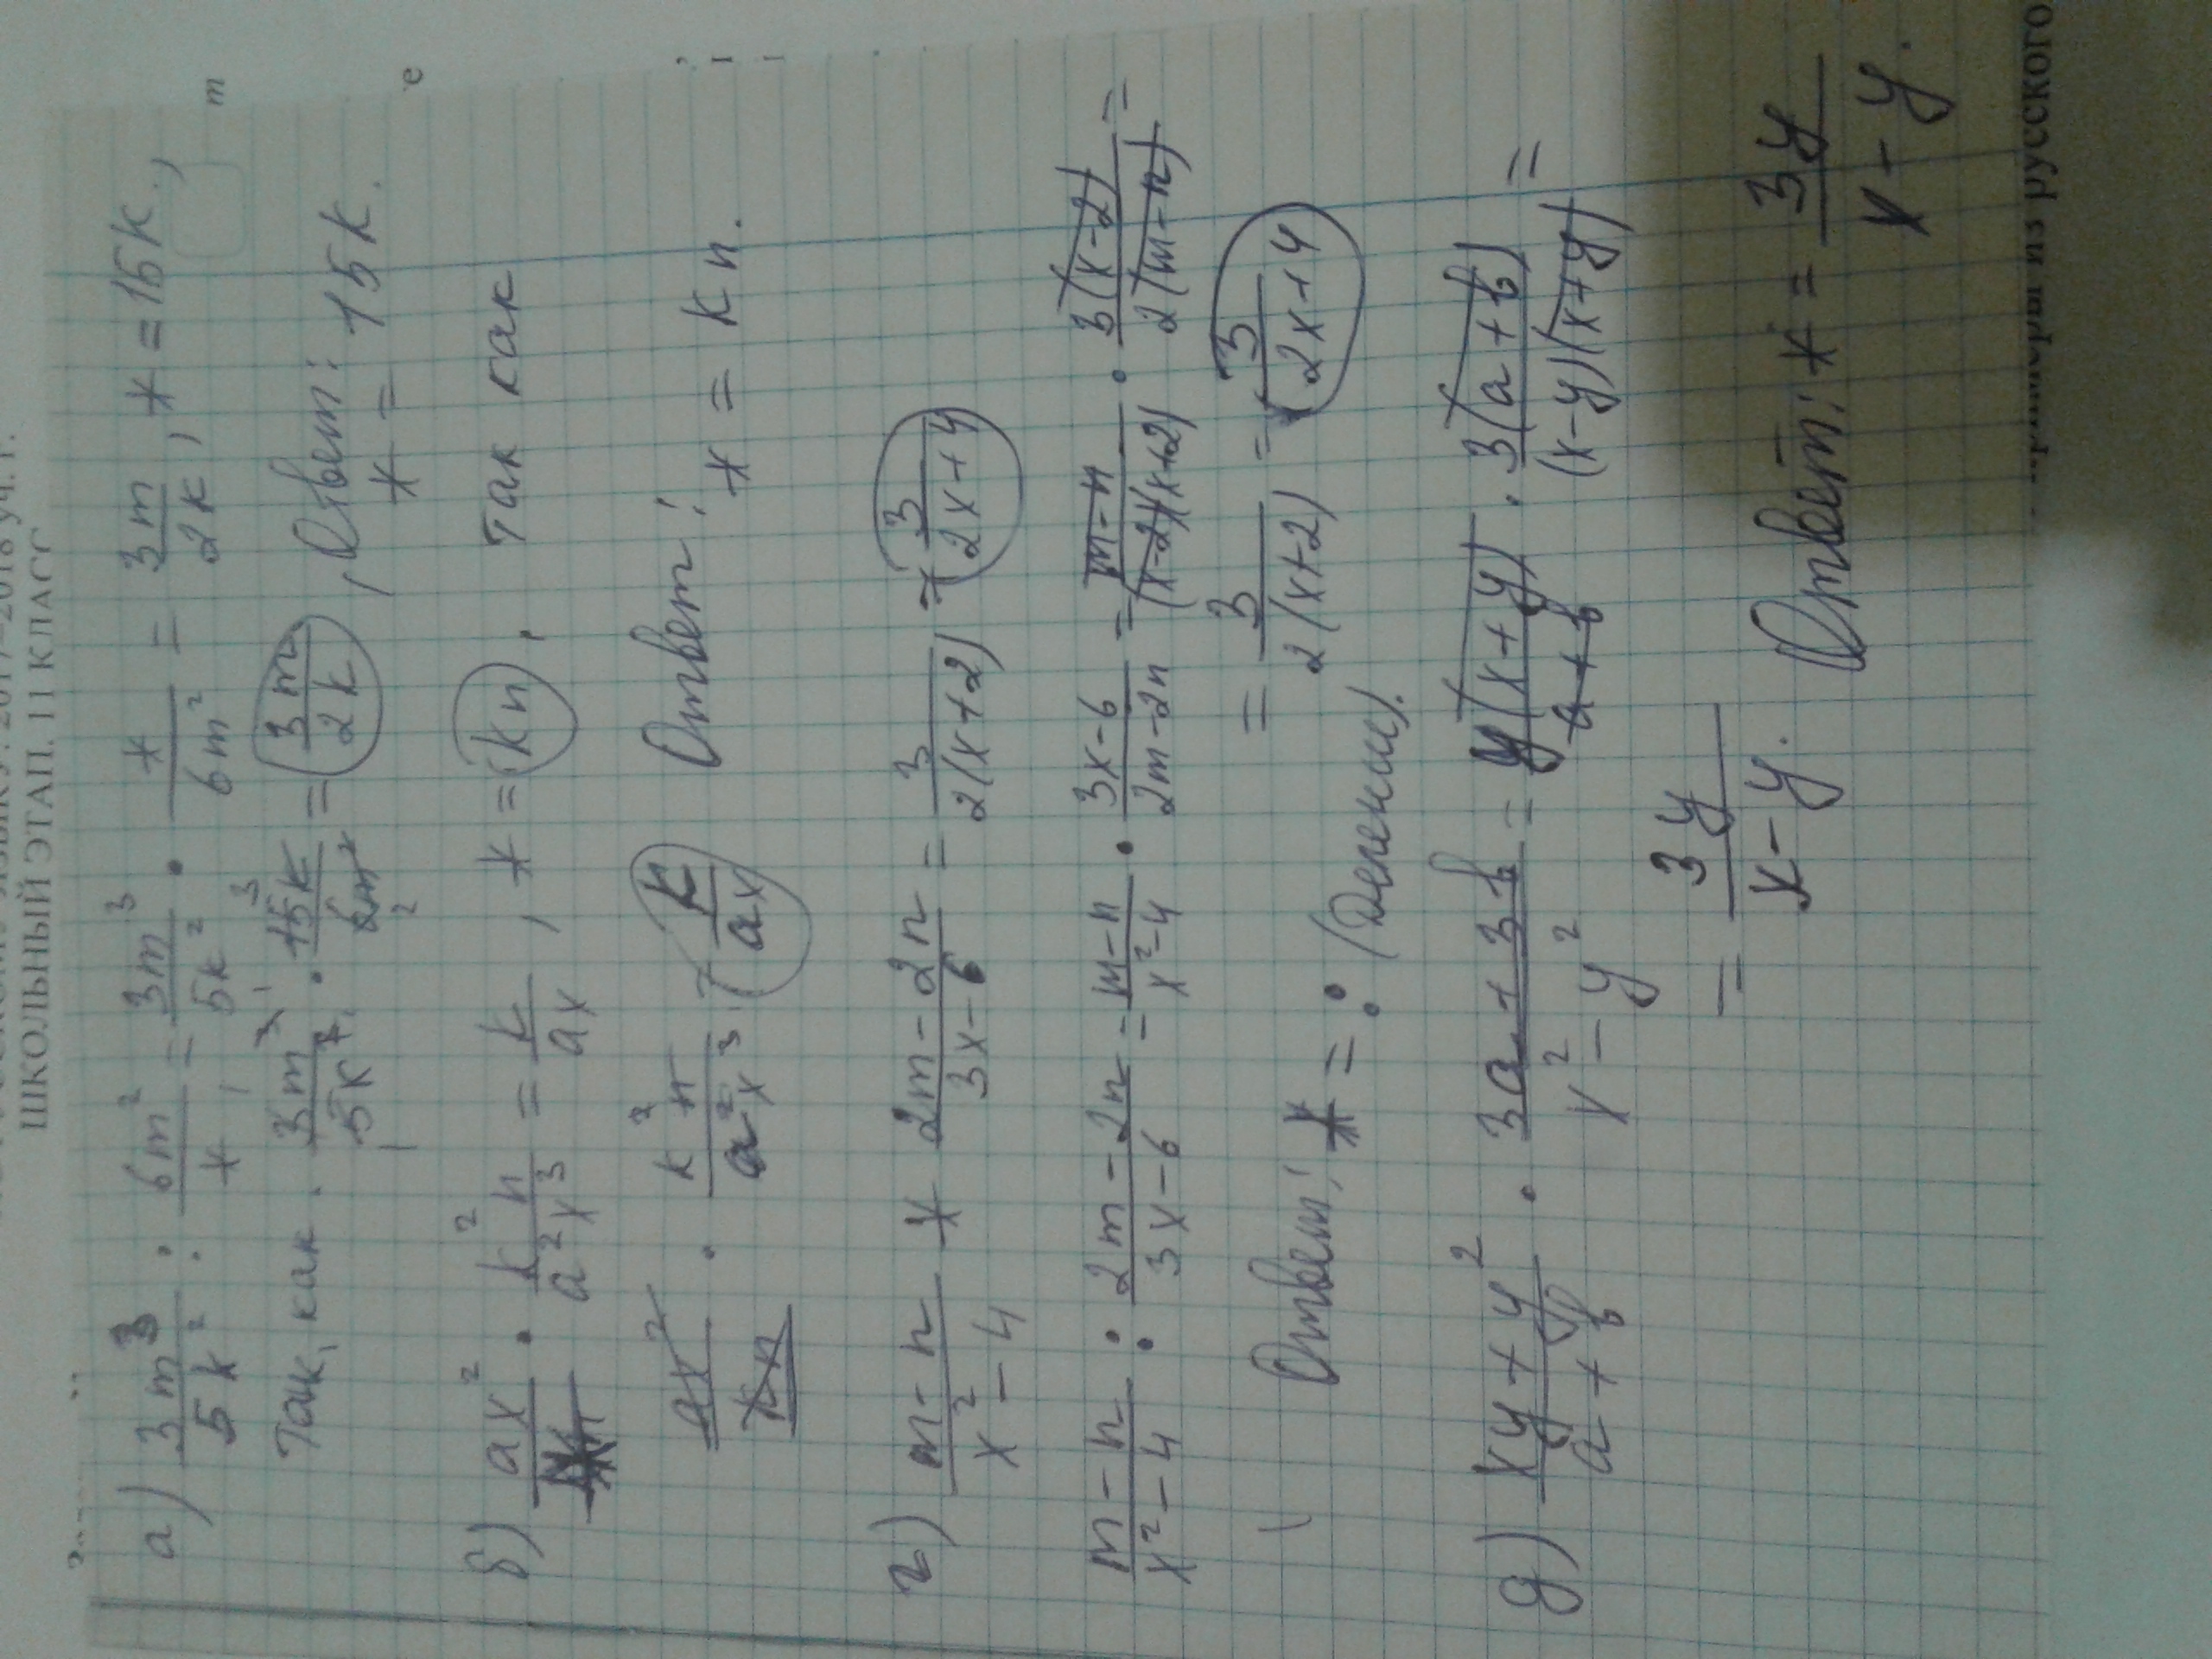 ШКОЛЬНЫЙ ЭТАП. 11 КЛАСС
а) 3m³/5k² : 6m²/* = 3m³/5k² · */6m² = 3m/2k, * = 15k.,
Так, как. 3m³/5k² · 15k/6m² = 3m/2k, Ответ: * = 15k.
б) ax²/* · k²n/a²x³ = k/ax, * = kn, так как
ax²/kn · k²n/a²x³ = k/ax Ответ: * = kn.
г) m-n/x²-4 * 2m-2n/3x-6 = 3/2(x+2) = 3/2x+4
m-n/x²-4 : 2m-2n/3x-6 = m-n/x²-4 · 3x-6/2m-2n = m-n/(x-2)(x+2) · 3(x-2)/2(m-n) =
= 3/2(x+2) = 3/2x+4
Ответ: * = : (Деление).
д) xy+y²/a+b · 3a+3b/x²-y² = y(x+y)/a+b · 3(a+b)/(x-y)(x+y) =
= 3y/x-y. Ответ: * = 3y/x-y.
из русского